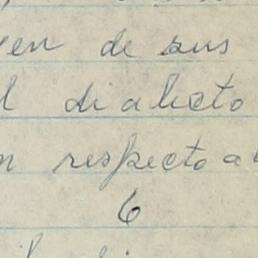 de sus
dialecto
respecto a
6